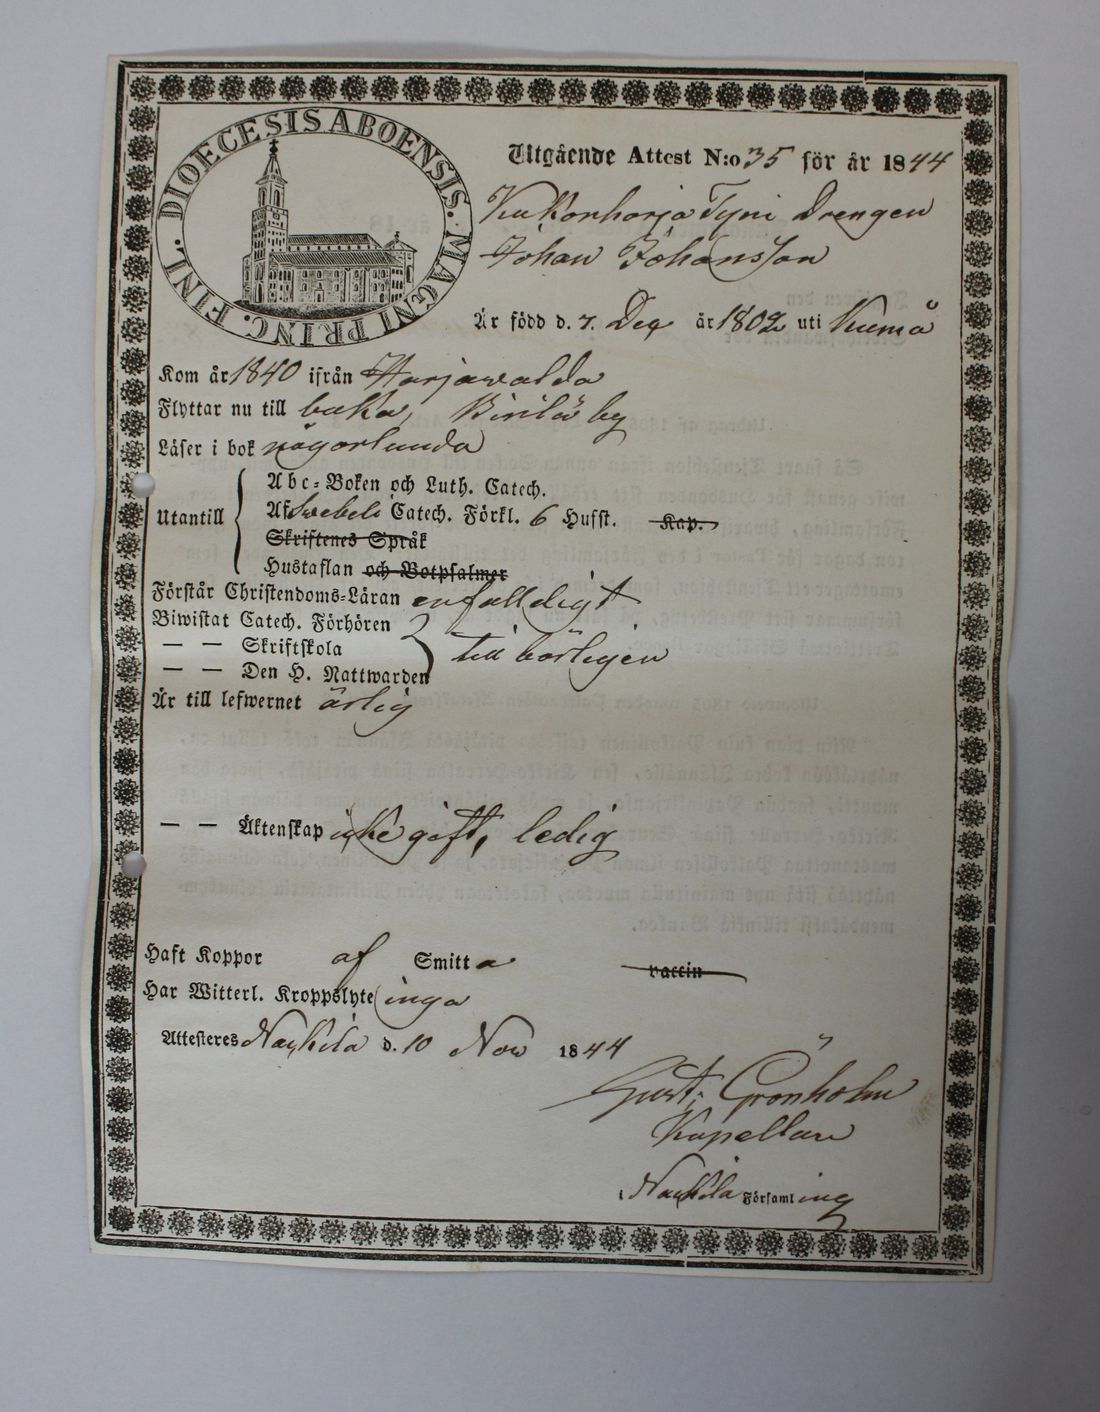 DIOECESIS ABOENSIS. MAGNI PRINC. FINL.
Utgående Attest N:o 35 för år 1844
Kukonharja Tyni Drengen
Johan Johansson
Är född d. 7. Dec år 1802 uti Kumå
Kom år 1840 ifrån Harjawalda
Flyttar nu till baka, by
Läser i bok någorlunda
Utantill
Abc-Boken och Luth. Catech.
Af Swebeli Catech. Förkl. 6 Hufst. Kap.
Skriftenes Språk
Hustaflan och Botpsalmer
Förstår Christendoms-Läran enfalldigt
Biwistat Catech. Förhören
— — Skriftskola
till börligen
— — Den H. Nattwarden
Är till lefwernet ärlig
— — Äktenskap icke gift, ledig
Haft Koppor af Smitta vaccin
Har Witterl. Kroppslyte inga
Attesteres Nackila d. 10 Nov 1844
Gust: Grönholm
Kapellan
i Nackila Församling